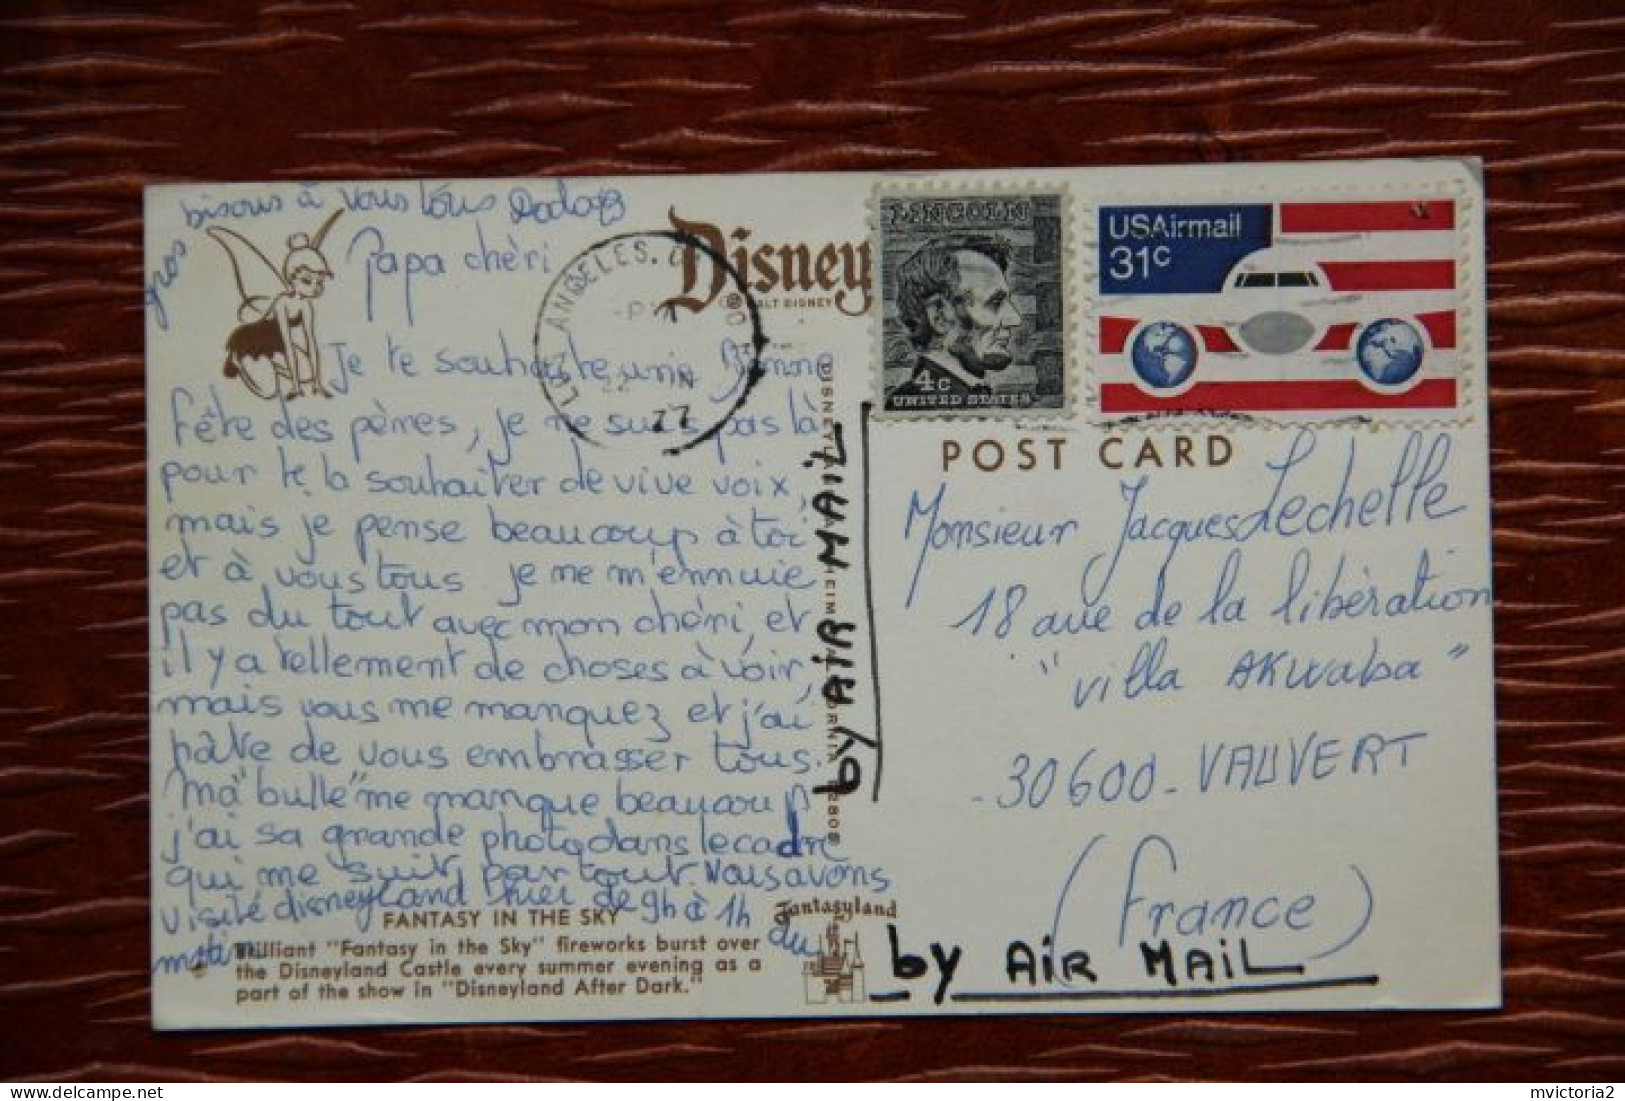 gros bisous à vous tous
Papa chéri
Je te souhaite une Bonne
Fête des pères, je ne suis pas là
pour te la souhaiter de vive voix,
mais je pense beaucoup à toi
et à vous tous. Je ne m'ennuie
pas du tout avec mon chéri, et
il y a tellement de choses à voir,
mais vous me manquez et j'ai
hâte de vous embrasser tous.
Ma "bulle" me manque beaucoup
j'ai sa grande photo dans le cadre
qui me suit partout. Nous avons
visité disneyland hier de 9h à 1h du
matin.
FANTASY IN THE SKY
Brilliant "Fantasy in the Sky" fireworks burst over
the Disneyland Castle every summer evening as a
part of the show in "Disneyland After Dark."
Fantasyland
LOS ANGELES, CA
22
77
Disney
WALT DISNEY
by AIR MAIL
LINCOLN
4c
UNITED STATES
USAirmail
31c
POST CARD
Monsieur Jacques Lechelle
18 ave de la libération
"villa Akwaba"
- 30600 - VAUVERT
(France)
by AIR MAIL
mvictoria2